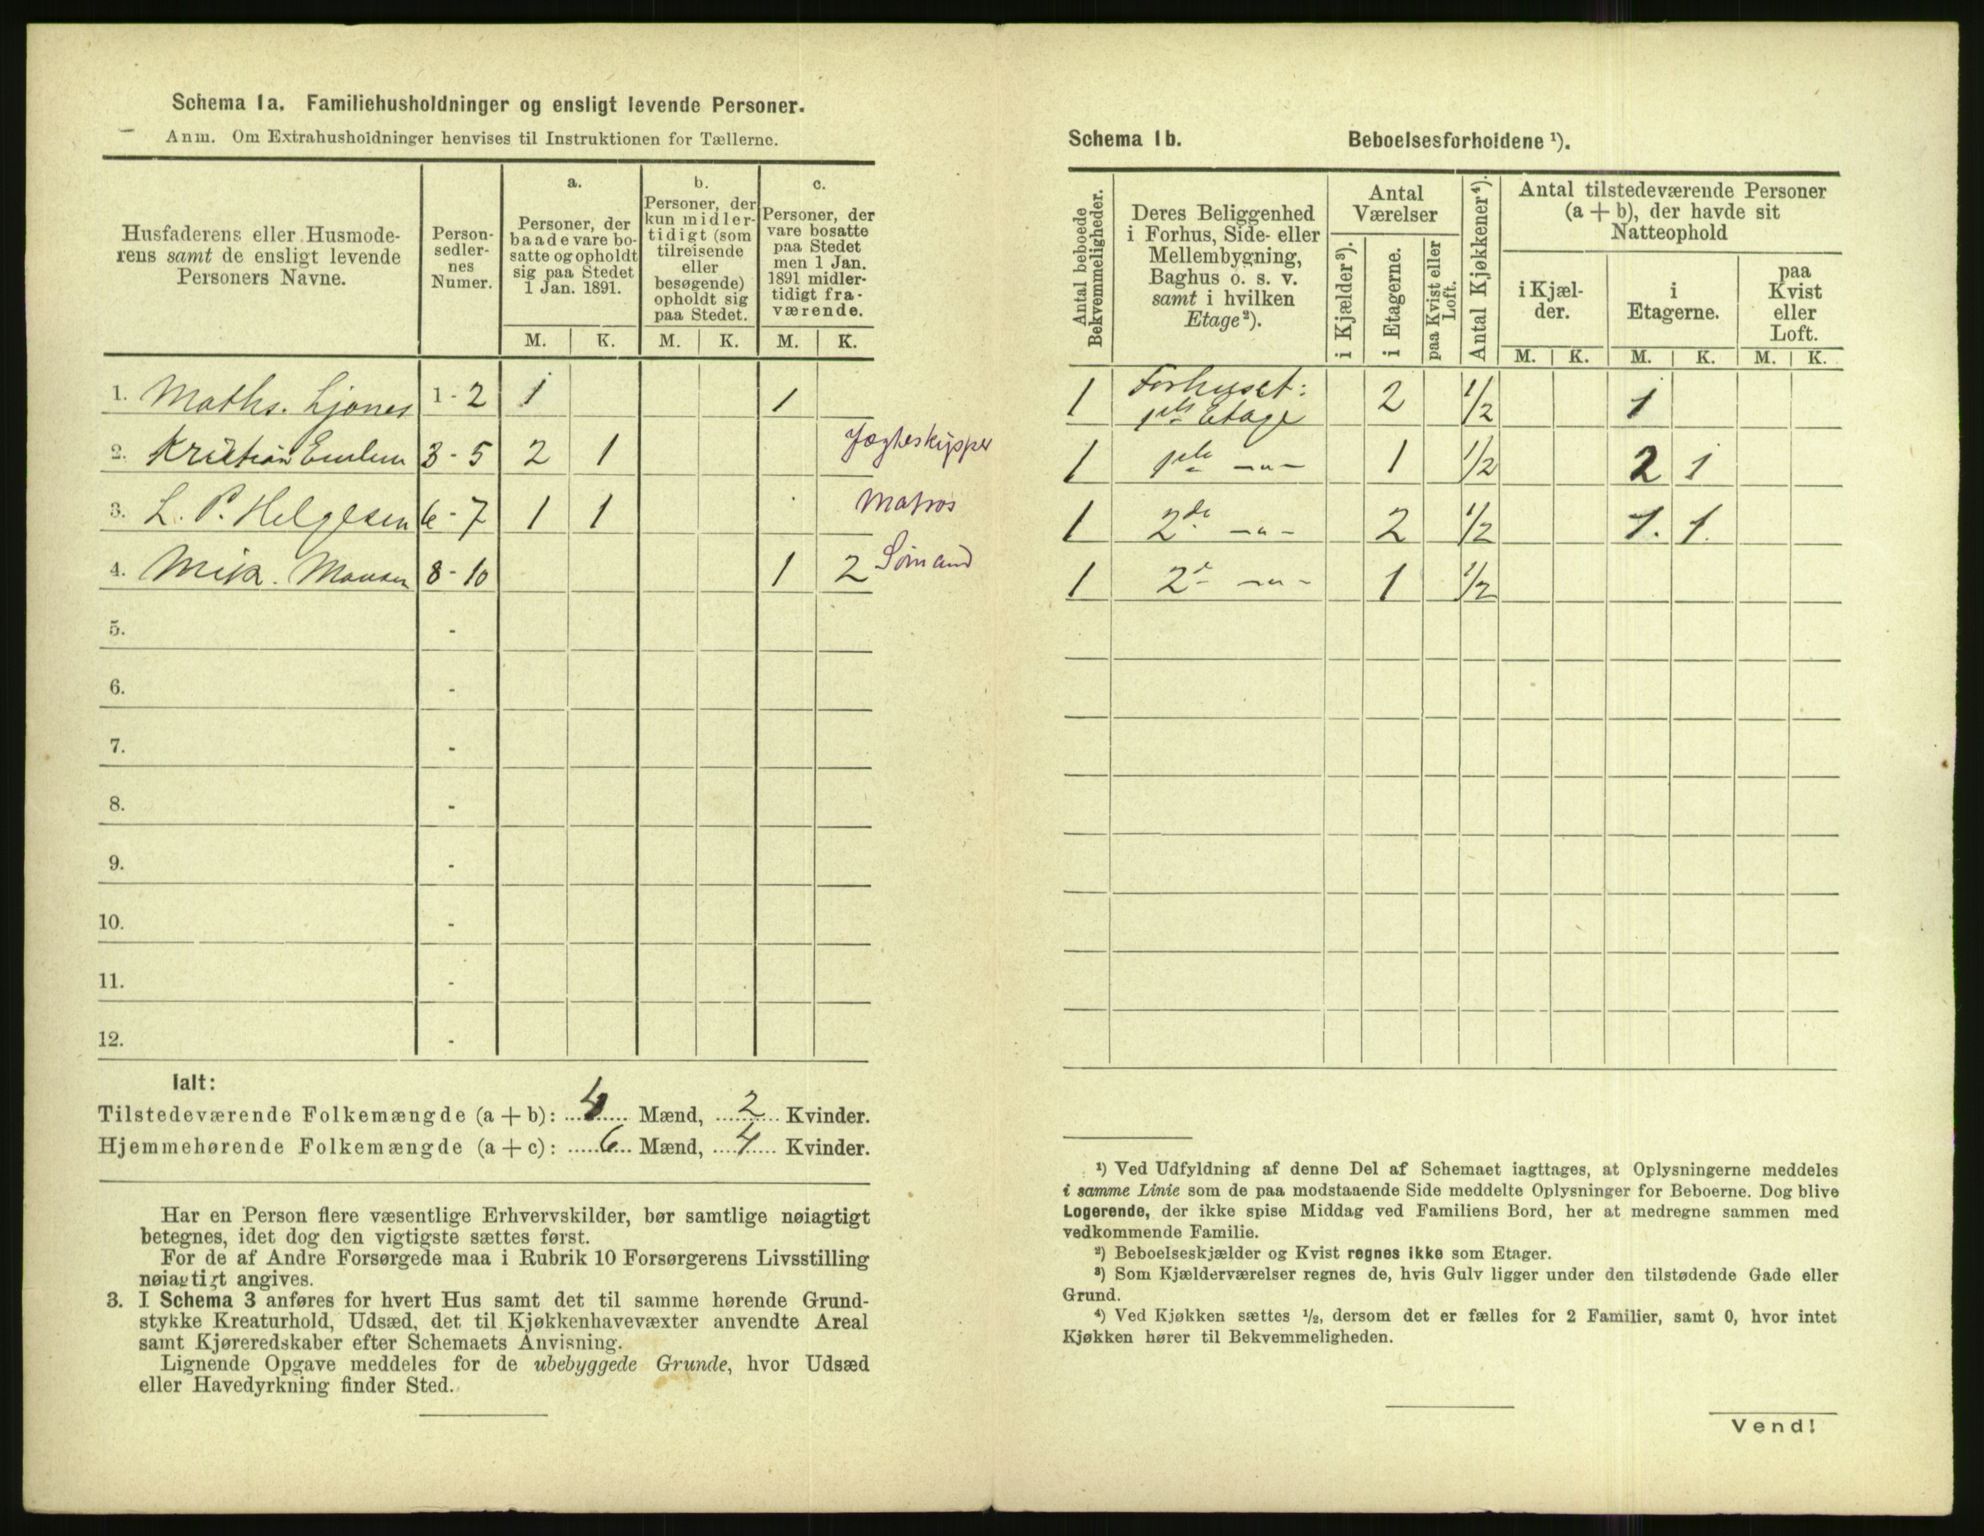 Schema 1a. Familiehusholdninger og ensligt levende Personer.
Anm. Om Extrahusholdninger henvises til Instruktionen for Tællerne.
Husfaderens eller Husmode-
rens samt de ensligt levende
Personers Navne.
Person-
sedler-
nes
Numer.
a.
Personer, der
baade vare bo-
satte og opholdt
sig paa Stedet
1 Jan. 1891.
b.
Personer, der
kun midler-
tidigt (som
tilreisende
eller
besøgende)
opholdt sig
paa Stedet.
c.
Personer, der
vare bosatte
paa Stedet
men 1 Jan.
1891 midler-
tidigt fra-
værende.
M. K. M. K. M. K.
1. Maths. Ljones 1 - 2 1 1
2. Kristian 3 - 5 2 1 Jægteskipper
3. L. P. Helgesen 6 - 7 1 1 Matros
4. Mik. Monsen 8 - 10 1 2 Sømand
5. -
6. -
7. -
8. -
9. -
10. -
11. -
12. -
Ialt:
Tilstedeværende Folkemængde (a + b): 4 Mænd, 2 Kvinder.
Hjemmehørende Folkemængde (a + c): 6 Mænd, 4 Kvinder.
Har en Person flere væsentlige Erhvervskilder, bør samtlige nøiagtigt
betegnes, idet dog den vigtigste sættes først.
For de af Andre Forsørgede maa i Rubrik 10 Forsørgerens Livsstilling
nøiagtigt angives.
3. I Schema 3 anføres for hvert Hus samt det til samme hørende Grund-
stykke Kreaturhold, Udsæd, det til Kjøkkenhavevæxter anvendte Areal
samt Kjøreredskaber efter Schemaets Anvisning.
Lignende Opgave meddeles for de ubebyggede Grunde, hvor Udsæd
eller Havedyrkning finder Sted.
Schema 1b. Beboelsesforholdene ¹).
Antal beboede
Bekvemmeligheder.
Deres Beliggenhed
i Forhus, Side- eller
Mellembygning,
Baghus o. s. v.
samt i hvilken
Etage²).
Antal
Værelser
i Kjælder³).
i Etagerne.
paa Kvist eller
Loft.
Antal Kjøkkener⁴).
Antal tilstedeværende Personer
(a + b), der havde sit
Natteophold
i Kjæl-
der.
i
Etagerne.
paa
Kvist
eller
Loft.
M. K. M. K. M. K.
1 Forhuset: 2 1/2 1
1ste Etage
1 1ste -"- 1 1/2 2 1
1 2de -"- 2 1/2 1. 1.
1 2de -"- 1 1/2
¹) Ved Udfyldning af denne Del af Schemaet iagttages, at Oplysningerne meddeles
i samme Linie som de paa modstaaende Side meddelte Oplysninger for Beboerne. Dog blive
Logerende, der ikke spise Middag ved Familiens Bord, her at medregne sammen med
vedkommende Familie.
²) Beboelseskjælder og Kvist regnes ikke som Etager.
³) Som Kjælderværelser regnes de, hvis Gulv ligger under den tilstødende Gade eller
Grund.
⁴) Ved Kjøkken sættes ½, dersom det er fælles for 2 Familier, samt 0, hvor intet
Kjøkken hører til Bekvemmeligheden.
Vend!